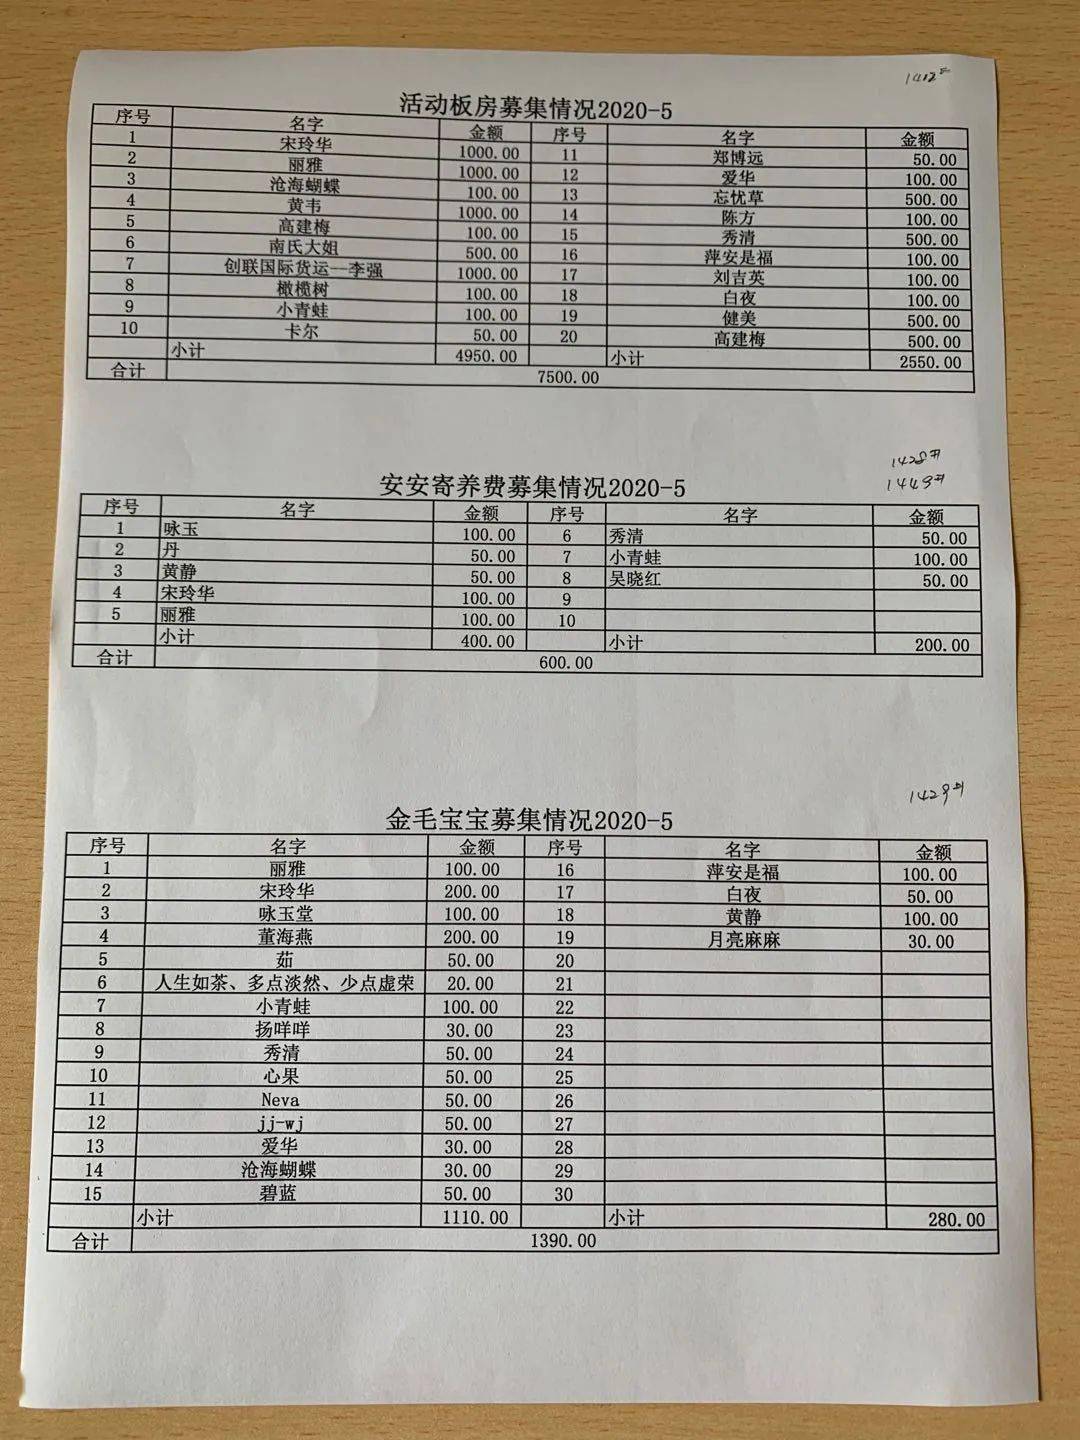 1412#
活动板房募集情况2020-5
序号 名字 金额 序号 名字 金额
1 宋玲华 1000.00 11 郑博远 50.00
2 丽雅 1000.00 12 爱华 100.00
3 沧海蝴蝶 100.00 13 忘忧草 500.00
4 黄韦 1000.00 14 陈方 100.00
5 高建梅 100.00 15 秀清 500.00
6 南氏大姐 500.00 16 萍安是福 100.00
7 创联国际货运--李强 1000.00 17 刘吉英 100.00
8 橄榄树 100.00 18 白夜 100.00
9 小青蛙 100.00 19 健美 500.00
10 卡尔 50.00 20 高建梅 500.00
小计 4950.00 小计 2550.00
合计 7500.00
1428#
1449#
安安寄养费募集情况2020-5
序号 名字 金额 序号 名字 金额
1 咏玉 100.00 6 秀清 50.00
2 丹 50.00 7 小青蛙 100.00
3 黄静 50.00 8 吴晓红 50.00
4 宋玲华 100.00 9
5 丽雅 100.00 10
小计 400.00 小计 200.00
合计 600.00
1429#
金毛宝宝募集情况2020-5
序号 名字 金额 序号 名字 金额
1 丽雅 100.00 16 萍安是福 100.00
2 宋玲华 200.00 17 白夜 50.00
3 咏玉堂 100.00 18 黄静 100.00
4 董海燕 200.00 19 月亮麻麻 30.00
5 茹 50.00 20
6 人生如茶、多点淡然、少点虚荣 20.00 21
7 小青蛙 100.00 22
8 扬咩咩 30.00 23
9 秀清 50.00 24
10 心果 50.00 25
11 Neva 50.00 26
12 jj-wj 50.00 27
13 爱华 30.00 28
14 沧海蝴蝶 30.00 29
15 碧蓝 50.00 30
小计 1110.00 小计 280.00
合计 1390.00